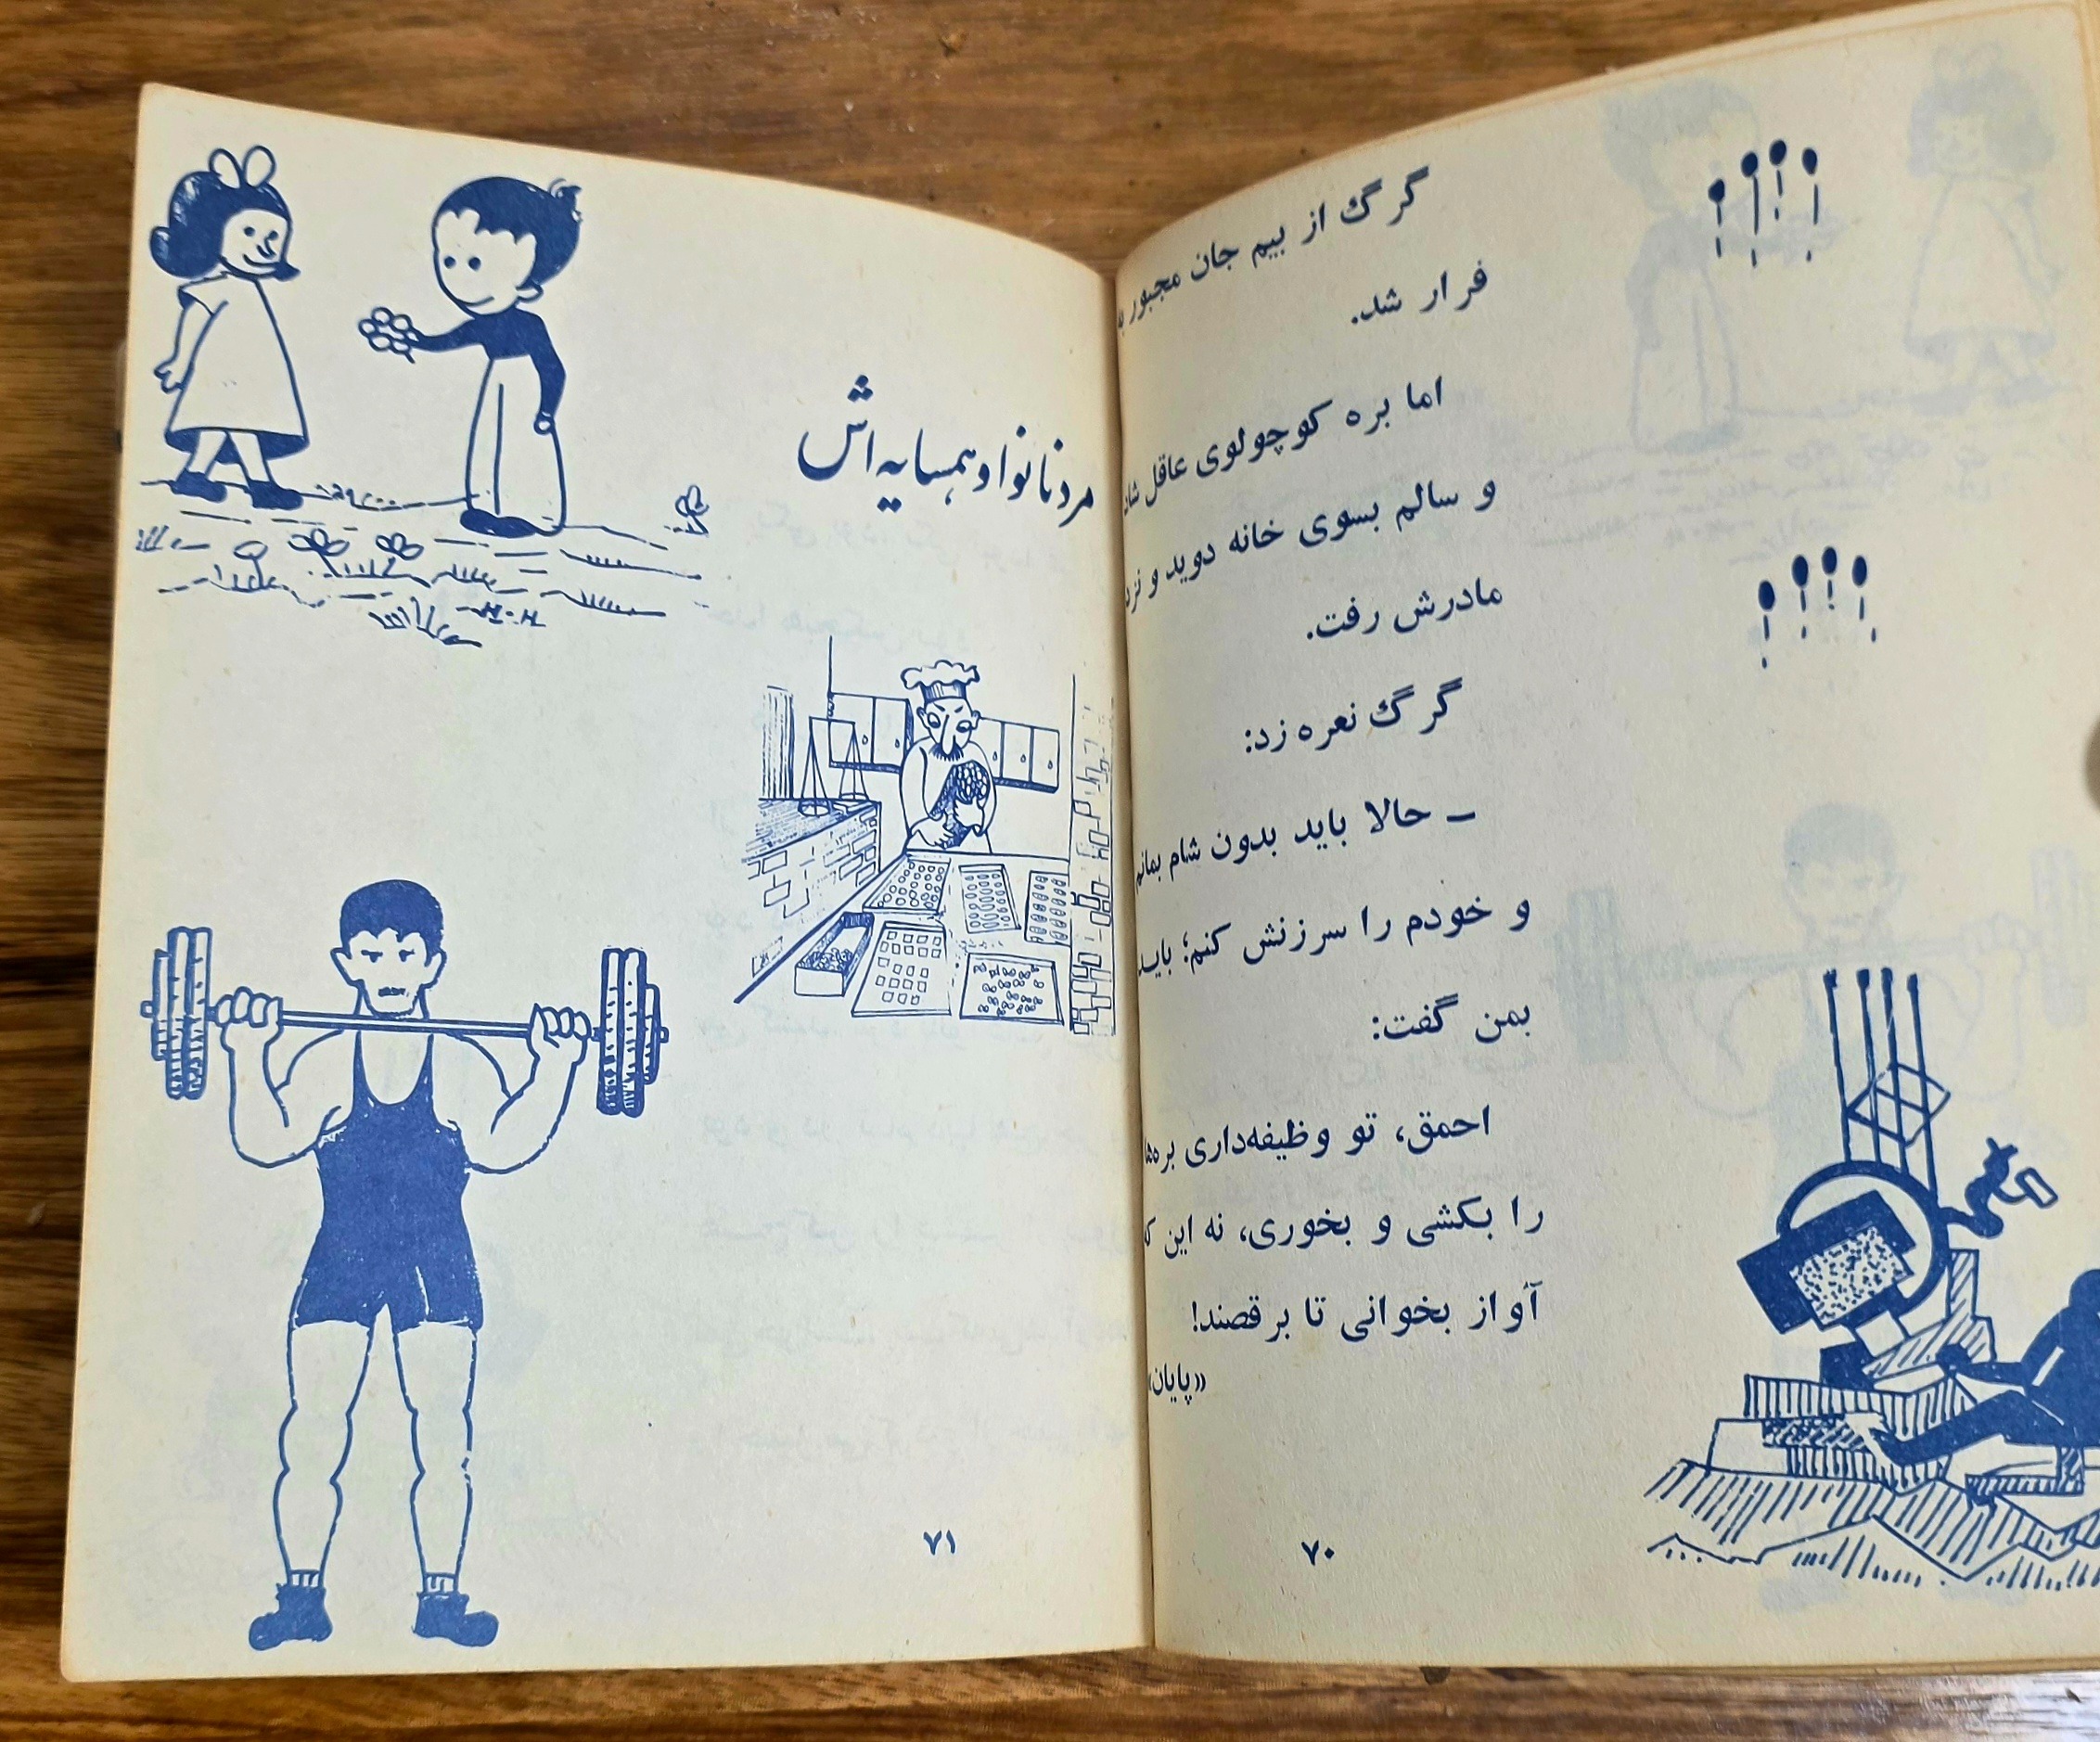 گرگ از بیم جان مجبور به
فرار شد.
اما بره کوچولوی عاقل شاد
و سالم بسوی خانه دوید و نزد
مادرش رفت.
گرگ نعره زد:
ـ حالا باید بدون شام بمانم
و خودم را سرزنش کنم؛ باید
بمن گفت:
احمق، تو وظیفه‌داری بره‌ها
را بکشی و بخوری، نه این که
آواز بخوانی تا برقصند!
«پایان»
۷۰
مرد نانوا و همسایه‌اش
۷۱